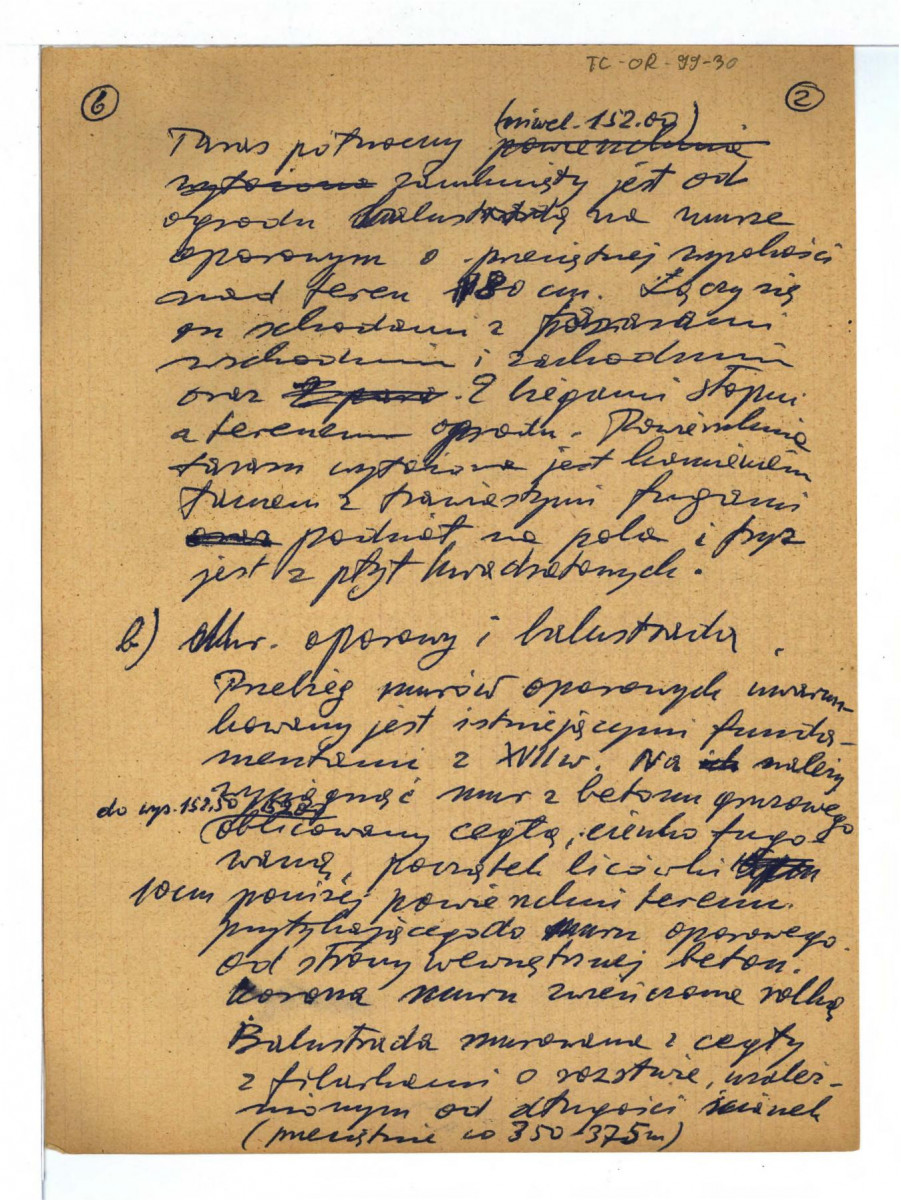 TC-OR-99-30
6 2
(niwel. 152.00)
Taras północny powierzchnia
wyłożona zamknięty jest od
ogrodu balustradą na murze
oporowym o przeciętnej wysokości
nad teren 180 cm. Łączy się
on schodami z tarasami
wschodnim i zachodnim
oraz 2 biegami stopni
z terenem ogrodu. Powierzchnia
tarasu wyłożona jest kamieniem
łamanem z trawiastymi fugami
oraz podział na pola i fryz
jest z płyt kwadratowych.
b) Mur oporowy i balustrada
Przebieg murów oporowych uwarun-
kowany jest istniejącymi funda-
mentami z XVII w. Na ich należy
wyciągnąć mur z betonu gruzowego
do wys. 152.50
oblicowany cegłą, cienko fugo-
waną, początek licówki
10 cm poniżej powierzchni terenu
przytykającego do muru oporowego.
Od strony wewnętrznej beton.
Korona muru zwieńczona rolką
Balustrada murowana z cegły
z filarkami o rozstawie, uzależ-
nionym od długości ścianek
(przeciętnie co 350-375 m)